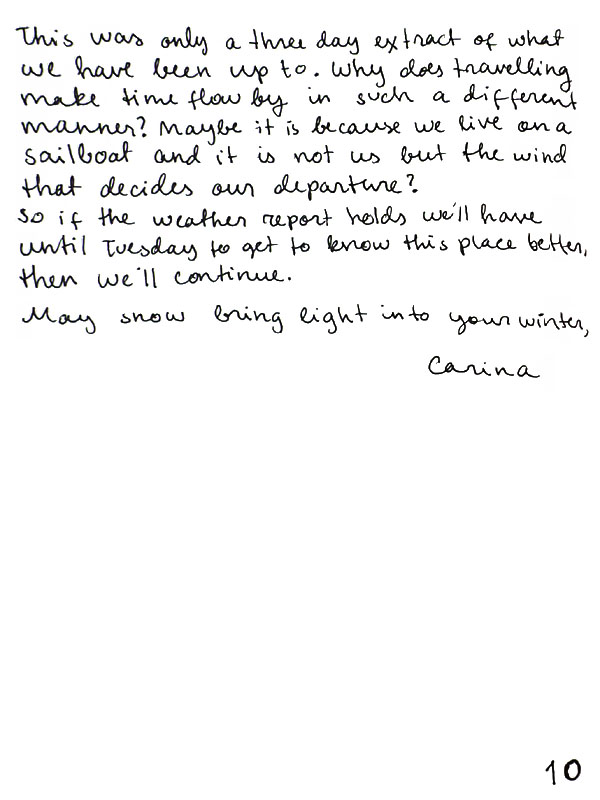 This was only a three day extract of what
we have been up to. Why does travelling
make time flow by in such a different
manner? Maybe it is because we live on a
sailboat and it is not us but the wind
that decides our departure?
So if the weather report holds we'll have
until Tuesday to get to know this place better,
then we'll continue.
May snow bring light into your winter,
Carina
10